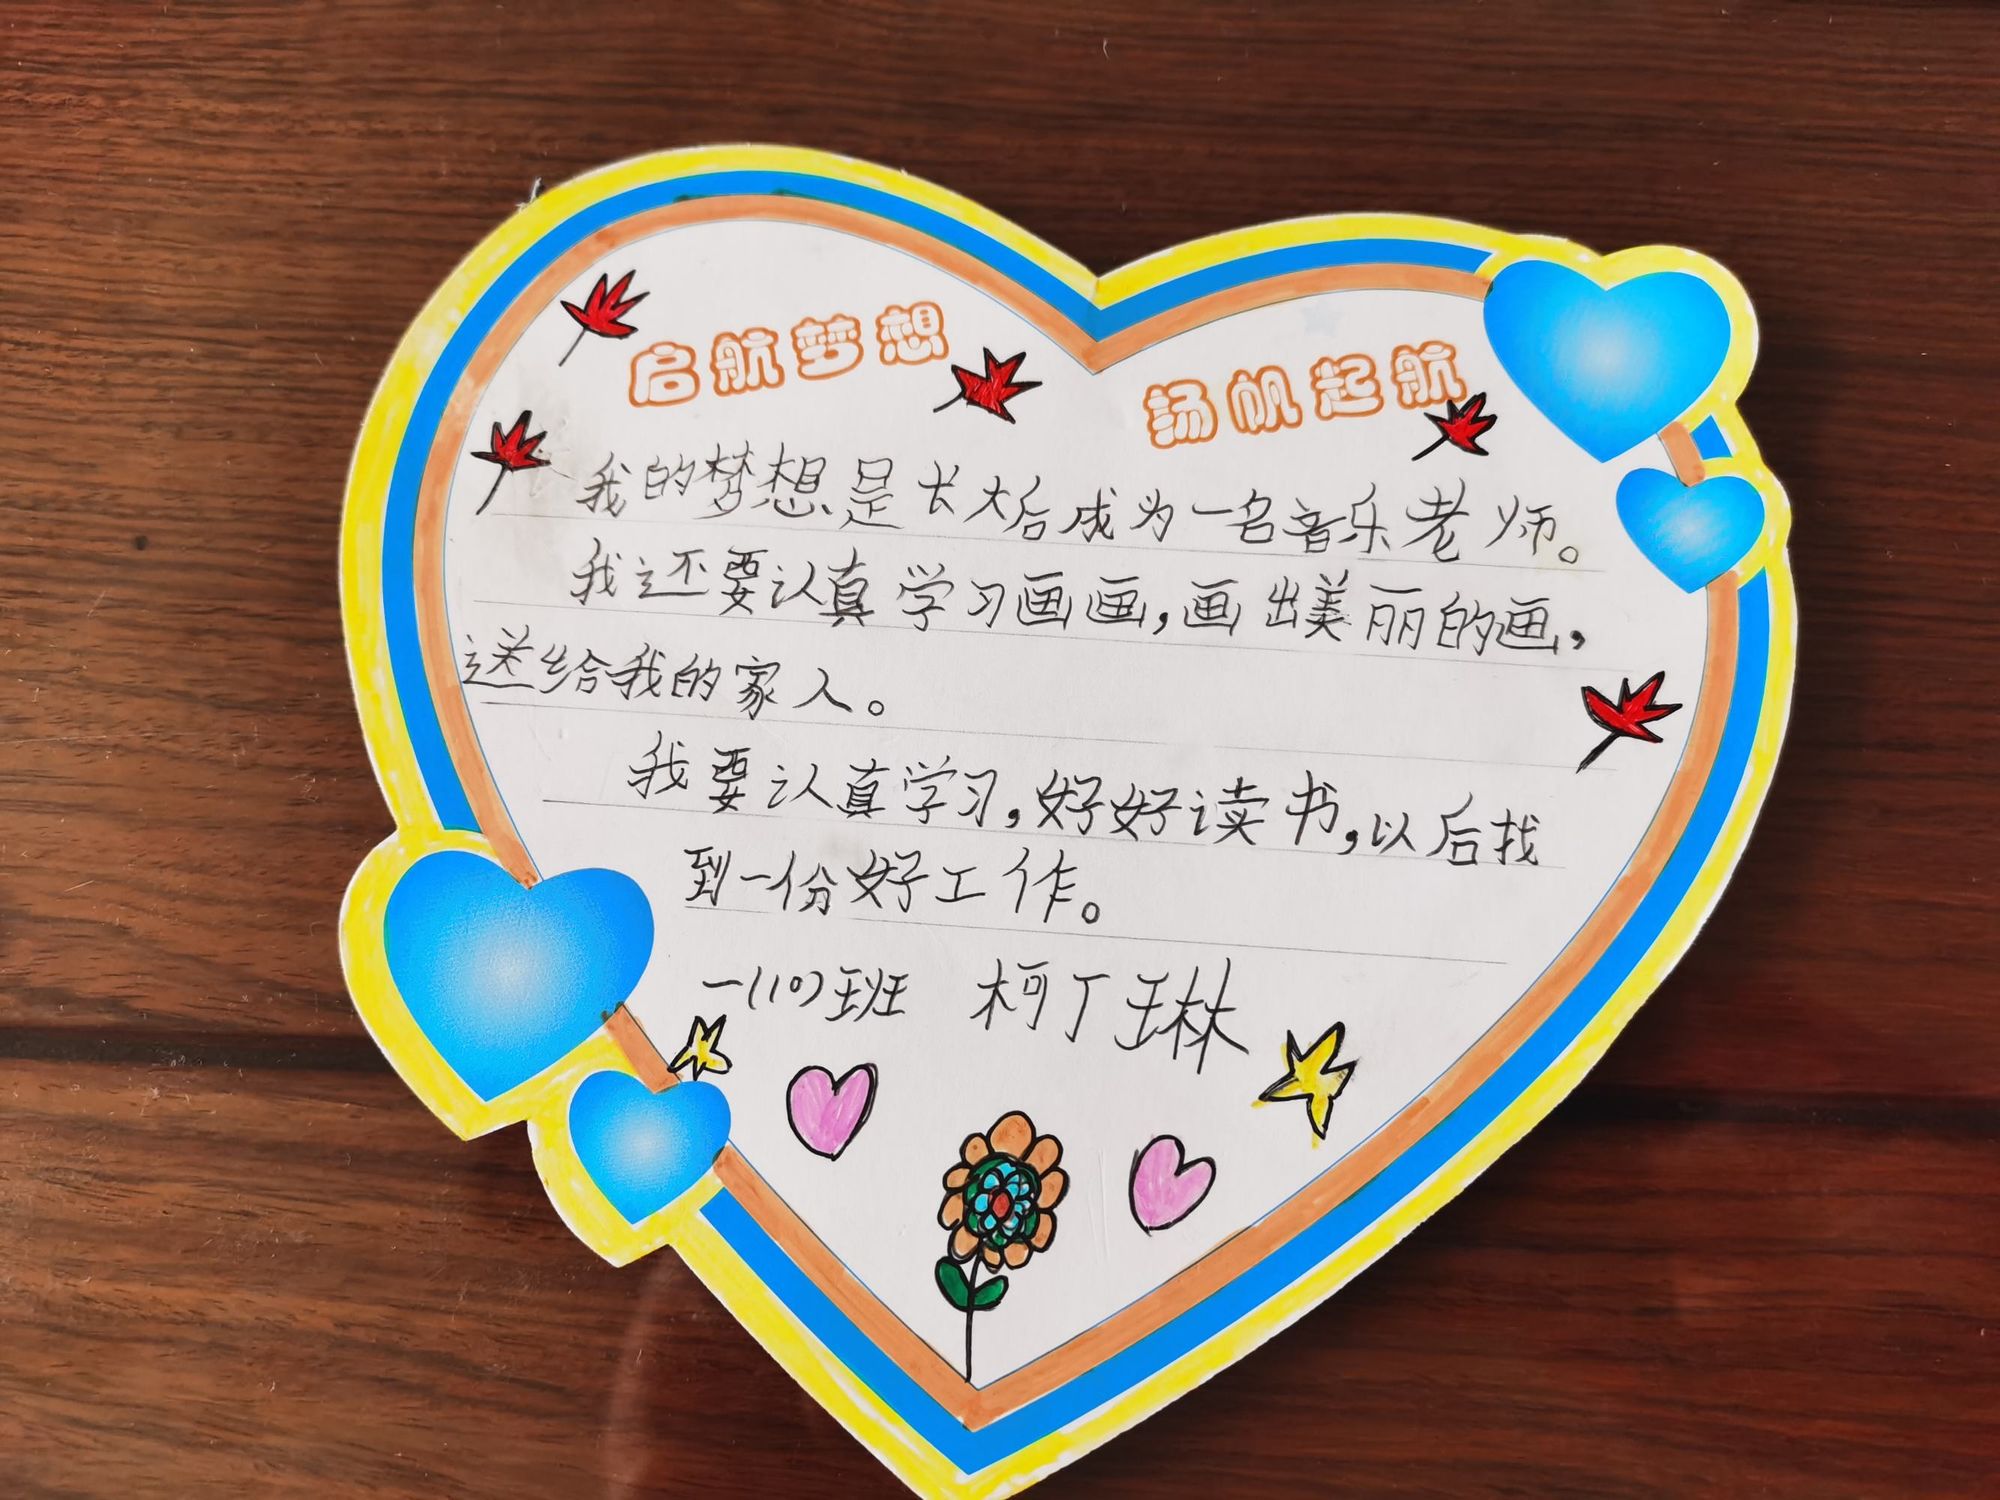 启航梦想 扬帆起航
我的梦想是长大后成为一名音乐老师。
我还要认真学习画画,画出美丽的画,
送给我的家人。
我要认真学习,好好读书,以后找
到一份好工作。
一(10)班 柯丁琳